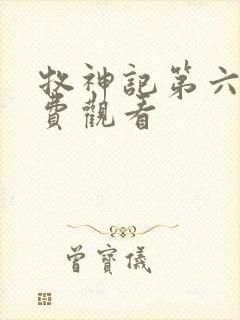 牧神記第六
費觀看
曾寶儀